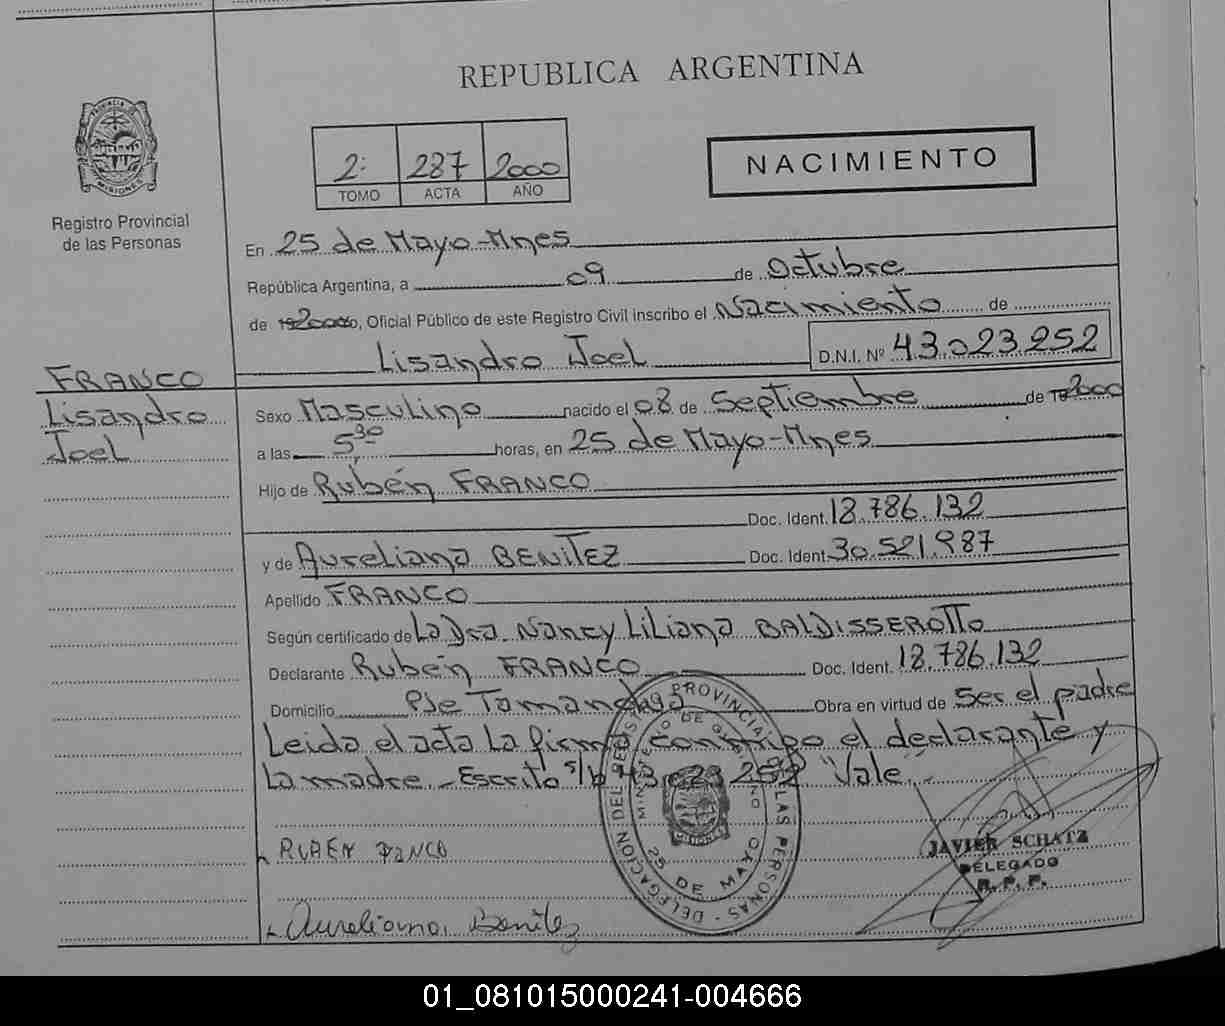 REPUBLICA ARGENTINA
PROVINCIA DE
MISIONES
Registro Provincial
de las Personas
2: 287 2000
TOMO ACTA AÑO
NACIMIENTO
En 25 de Mayo-Mnes
República Argentina, a 09 de Octubre
de 2000, Oficial Público de este Registro Civil inscribo el Nacimiento de
Lisandro Joel D.N.I. Nº 43.023.252
FRANCO
Lisandro
Joel
Sexo Masculino nacido el 08 de Septiembre de 2000
a las 5,30 horas, en 25 de Mayo-Mnes
Hijo de Rubén FRANCO
Doc. Ident. 18.786.132
y de Aureliana BENITEZ Doc. Ident. 30.521.987
Apellido FRANCO
Según certificado de La Dra. Nancy Liliana BALDISSEROTTO
Declarante Rubén FRANCO Doc. Ident. 18.786.132
Domicilio Pje Tamanduá Obra en virtud de Ser el padre
Leida el acta la firma conmigo el declarante y
la madre.- Escrito s/b 43.023.252 "Vale".-
DELEGACION DEL REGISTRO PROVINCIAL DE LAS PERSONAS -
MINISTERIO DE GOBIERNO
MISIONES
25 DE MAYO
RUBEN FRANCO
JAVIER SCHATZ
DELEGADO
R.P.P.
Aureliana Benitez
01_081015000241-004666